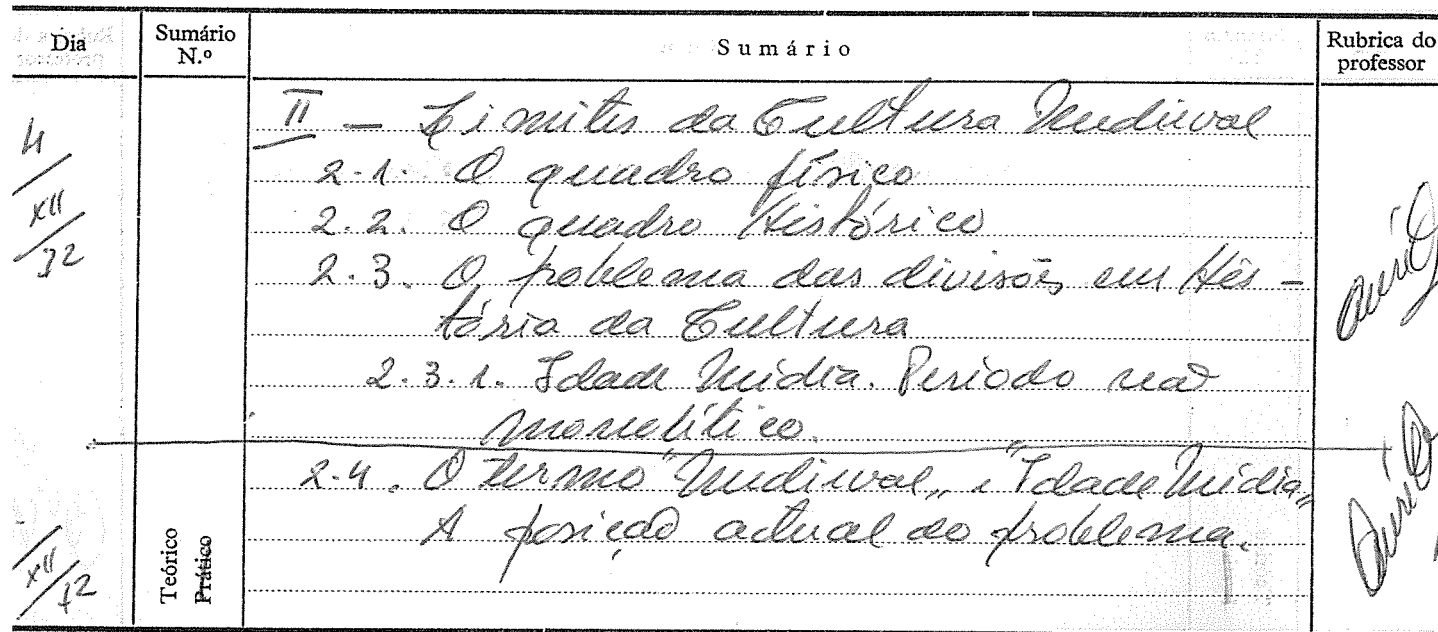 Dia
Sumário N.º
Sumário
Rubrica do professor
4/XII/72
II – Limites da Cultura Medieval
2.1. O quadro físico
2.2. O quadro Histórico
2.3. O problema das divisões em His-
tória da Cultura
2.3.1. Idade Média. Período não
monolítico.
XII/72
Teórico
Prático
2.4. O termo "Medieval„ e "Idade Média„
A posição actual do problema.